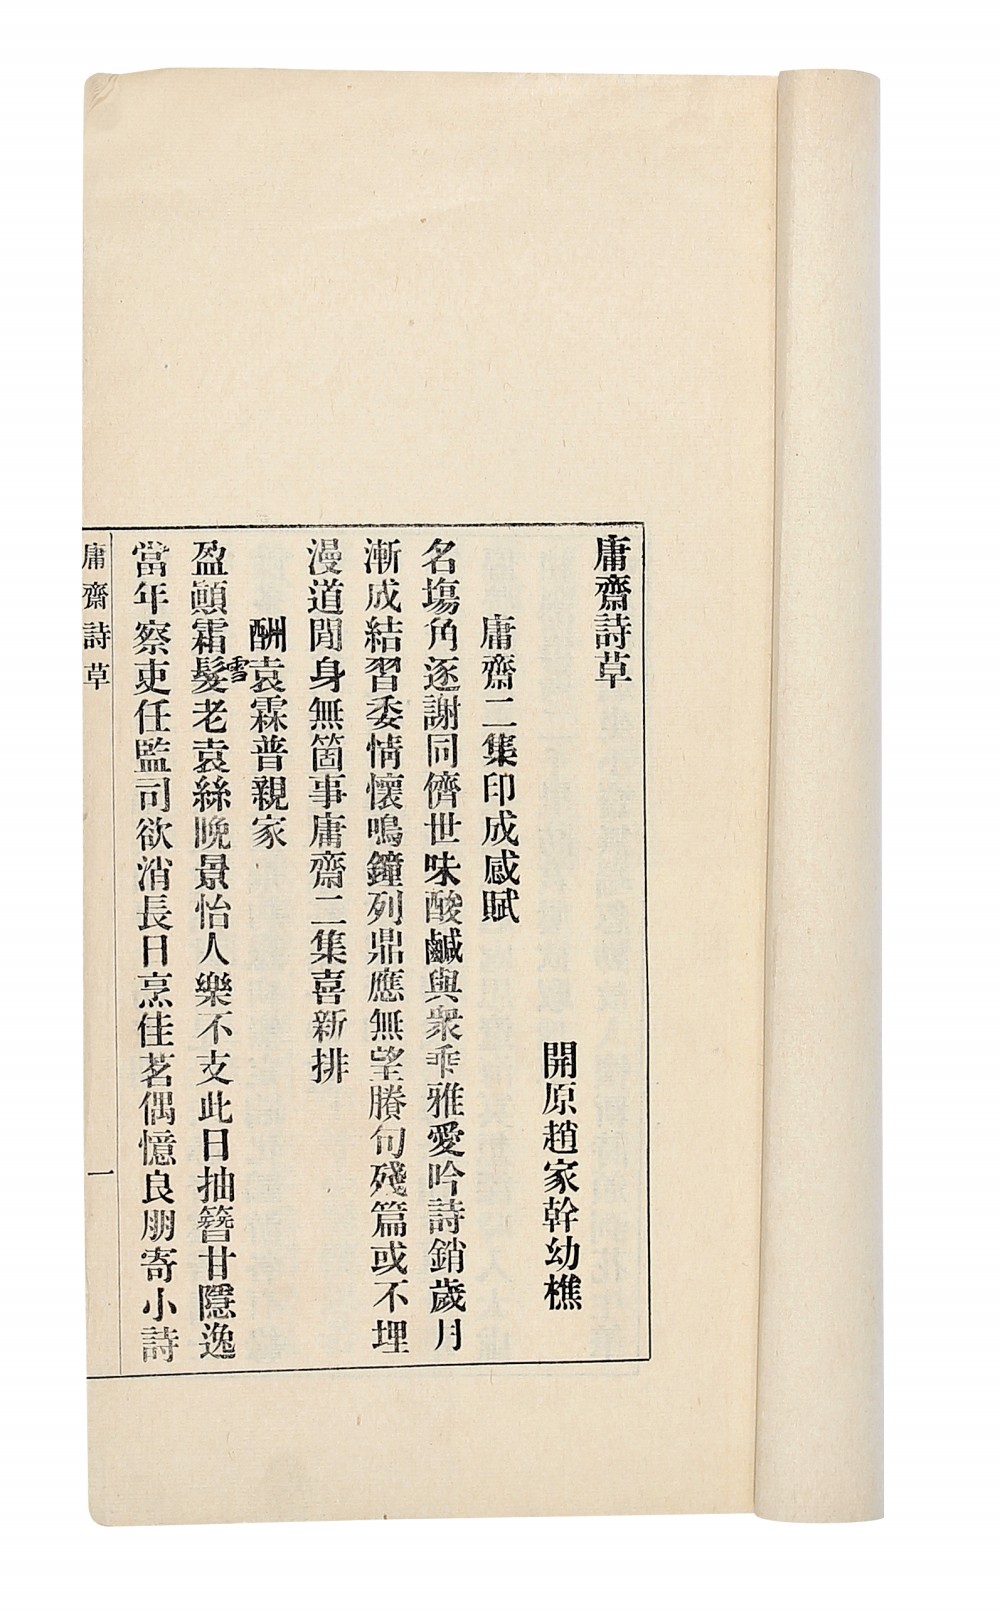 庸齋詩草
開原趙家幹幼樵
庸齋二集印成感賦
名塲角逐謝同儕世味酸鹹與衆乖雅愛吟詩銷歲月
漸成結習委情懷鳴鐘列鼎應無望賸句殘篇或不埋
漫道閒身無箇事庸齋二集喜新排
酬袁霖普親家
雪
盈顚霜髮老袁絲晚景怡人樂不支此日抽簪甘隱逸
當年察吏任監司欲消長日烹佳茗偶憶良朋寄小詩
庸齋詩草
一